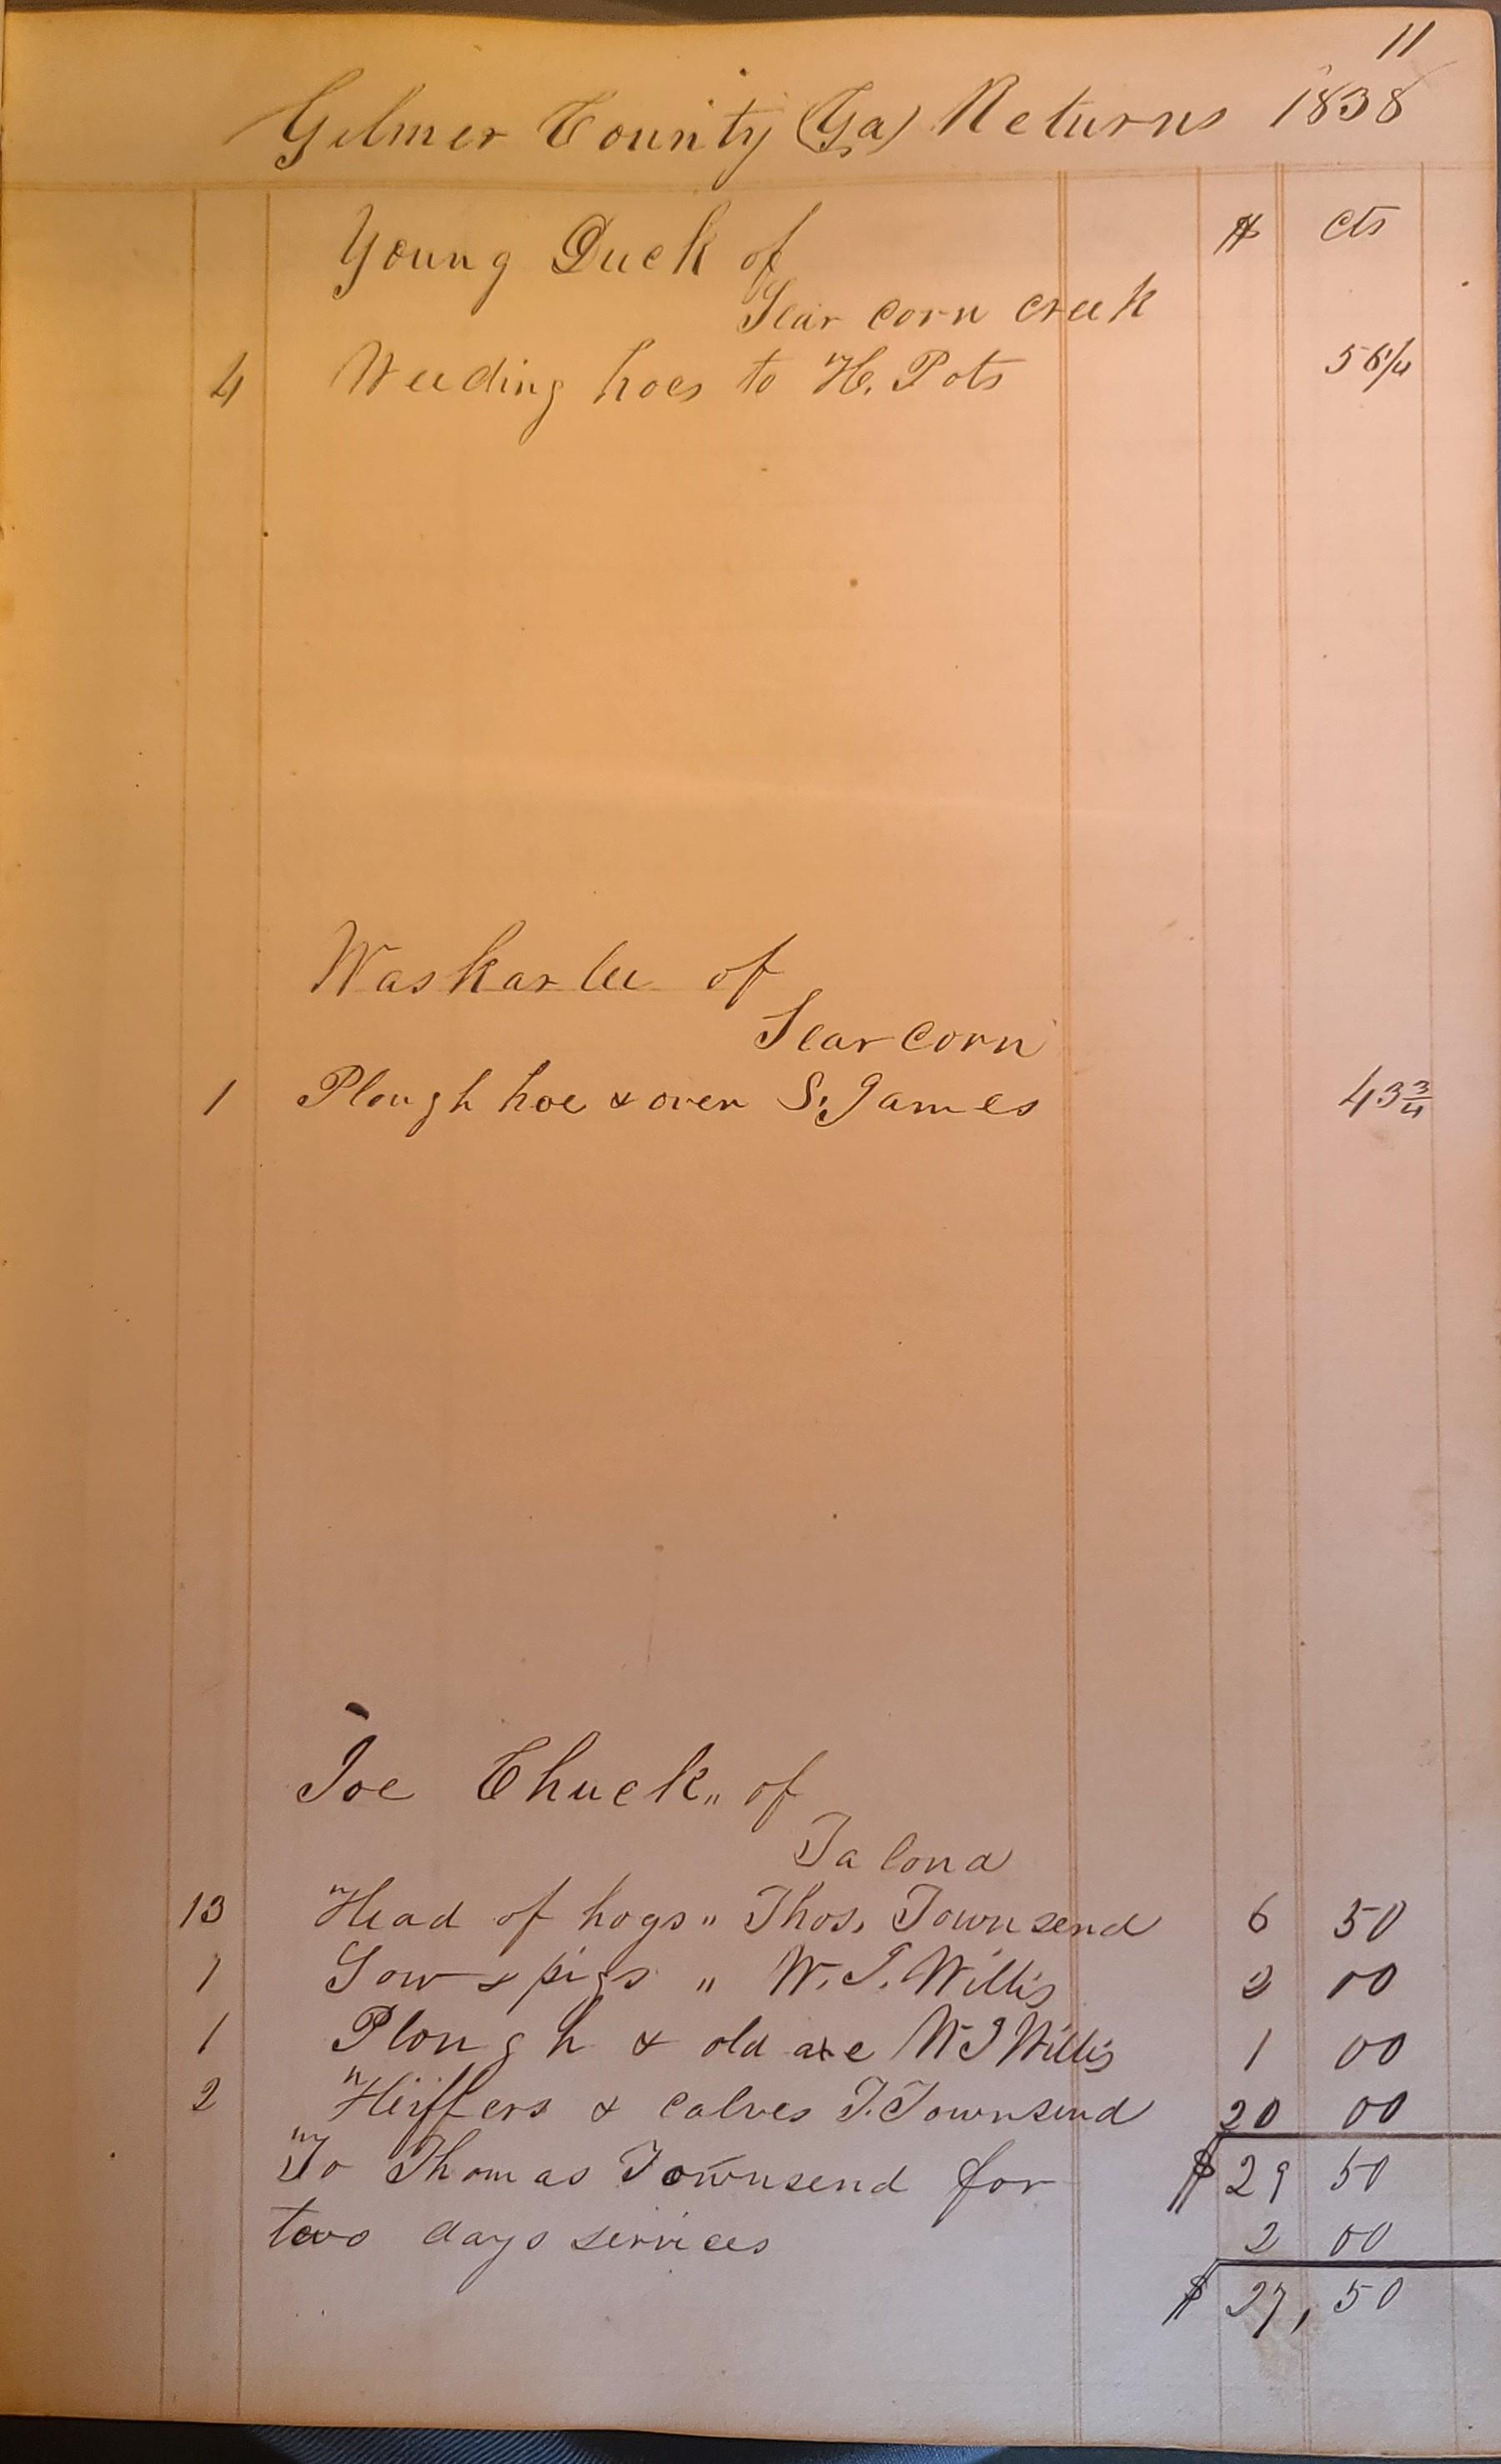 11
Gilmer County (Ga) Returns 1838
$ cts
Young Duck of
Scar corn creek
4 Weeding hoes to H. Pots 56 1/4
Waskarlee of
Scar corn
1 Plough hoe & oven S. James 43 3/4
Joe Chuck „ of
Talona
13 Head of hogs „ Thos. Townsend 6 50
1 Sow & pigs „ W. J. Willis 2 00
1 Plough & old axe W J Willis 1 00
2 Heiffers & calves T. Townsend 20 00
To Thomas Townsend for $ 29 50
two days services 2 00
$ 27, 50